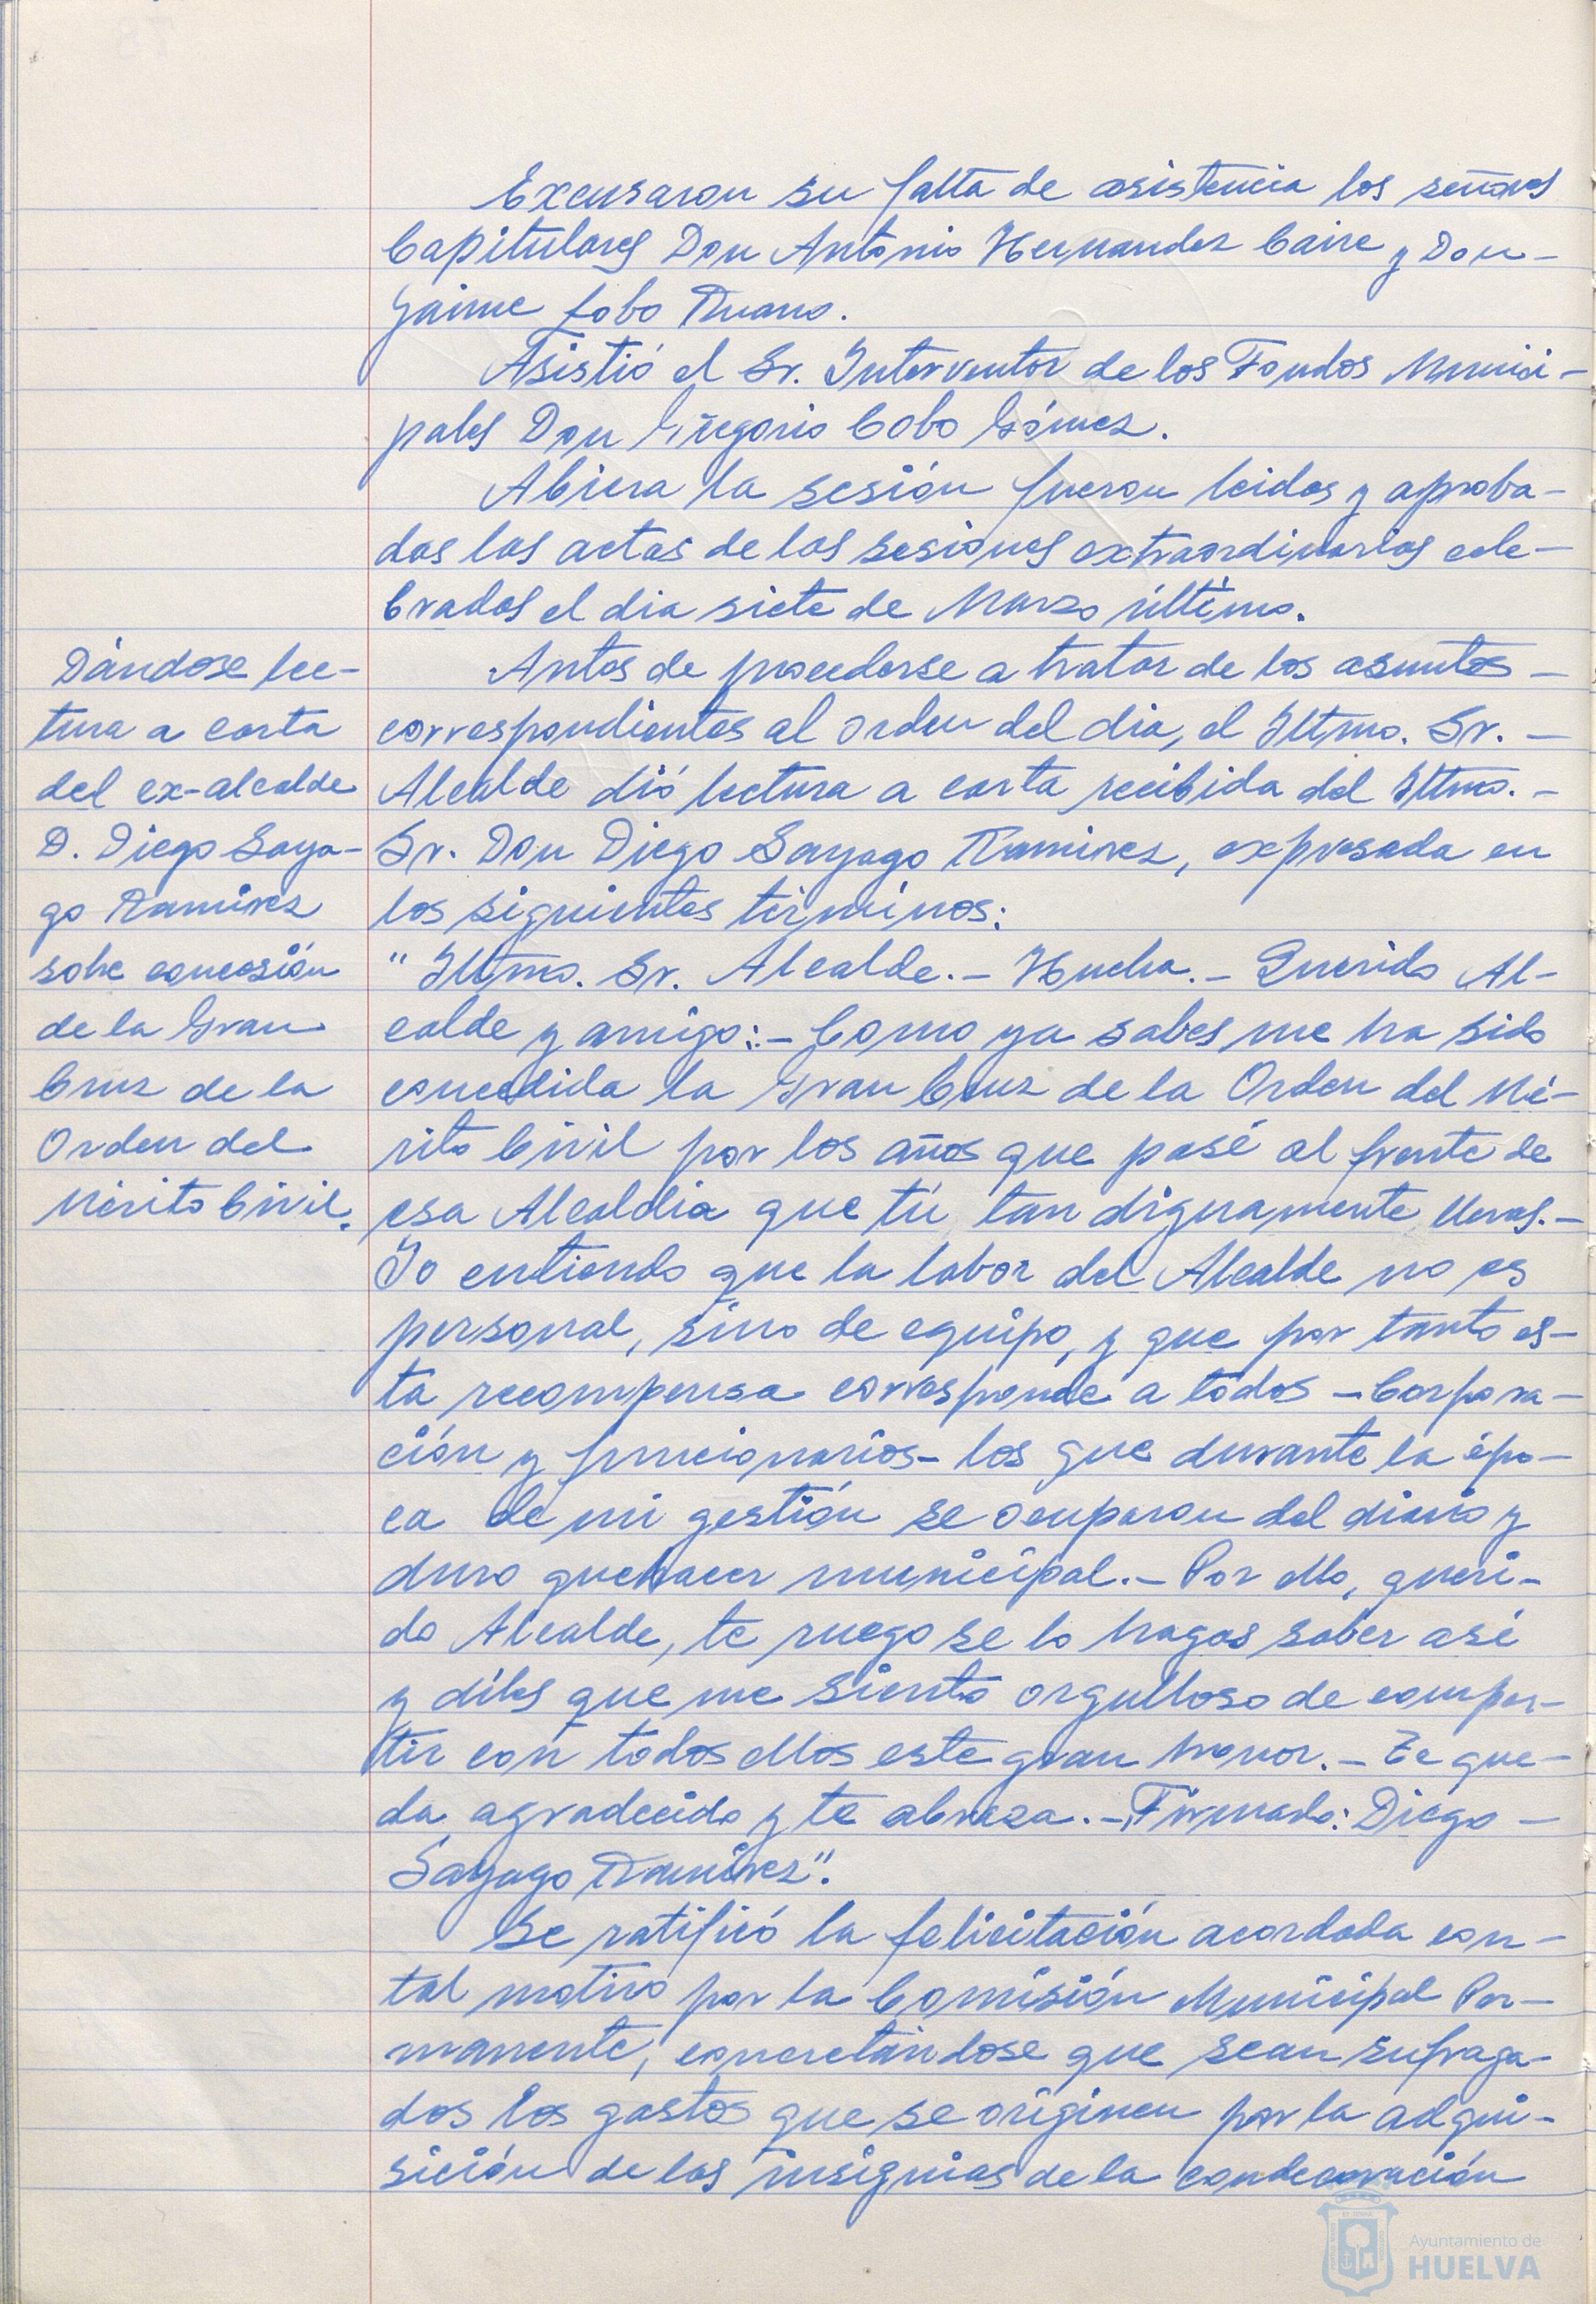 Excusaron su falta de asistencia los señores
Capitulares Don Antonio Hernandez Caire y Don-
Jaime Lobo Ruano.
Asistió el Sr. Interventor de los Fondos Munici-
pales Don Gregorio Cobo Gómez.
Abiera la sesión fueron leidas y aproba-
das las actas de las sesiones extraordinarias cele-
bradas el dia siete de Marzo último.
Dándose lec-
tura a carta
del ex-alcalde
D. Diego Saya-
go Ramirez
sobre concesión
de la Gran
Cruz de la
Orden del
Mérito Civil.
Antes de procederse a tratar de los asuntos-
correspondientes al orden del dia, el Iltmo. Sr.-
Alcalde dió lectura a carta recibida del Iltmo.-
Sr. Don Diego Sayago Ramirez, expresada en
los siguientes términos:
"Iltmo. Sr. Alcalde.- Huelva.- Querido Al-
calde y amigo:.- Como ya sabes me ha sido
concedida la Gran Cruz de la Orden del Mé-
rito Civil por los años que pasé al frente de
esa Alcaldia que tú tan dignamente llevas.-
Yo entiendo que la labor del Alcalde no es
personal, sino de equipo, y que por tanto es-
ta recompensa corresponde a todos -Corpora-
ción y funcionarios- los que durante la épo-
ca de mi gestión se ocuparon del diario y
duro quehacer municipal.- Por ello, queri-
do Alcalde, te ruego se lo hagas saber asi
y diles que me siento orgulloso de compar-
tir con todos ellos este gran honor.- Te que-
da agradecido y te abraza.- Firmado: Diego-
Sayago Ramirez".
Se ratificó la felicitación acordada con-
tal motivo por la Comisión Municipal Per-
manente, concretándose que sean sufraga-
dos los gastos que se originen por la adqui-
sición de las insignias de la condecoración
Ayuntamiento de
HUELVA